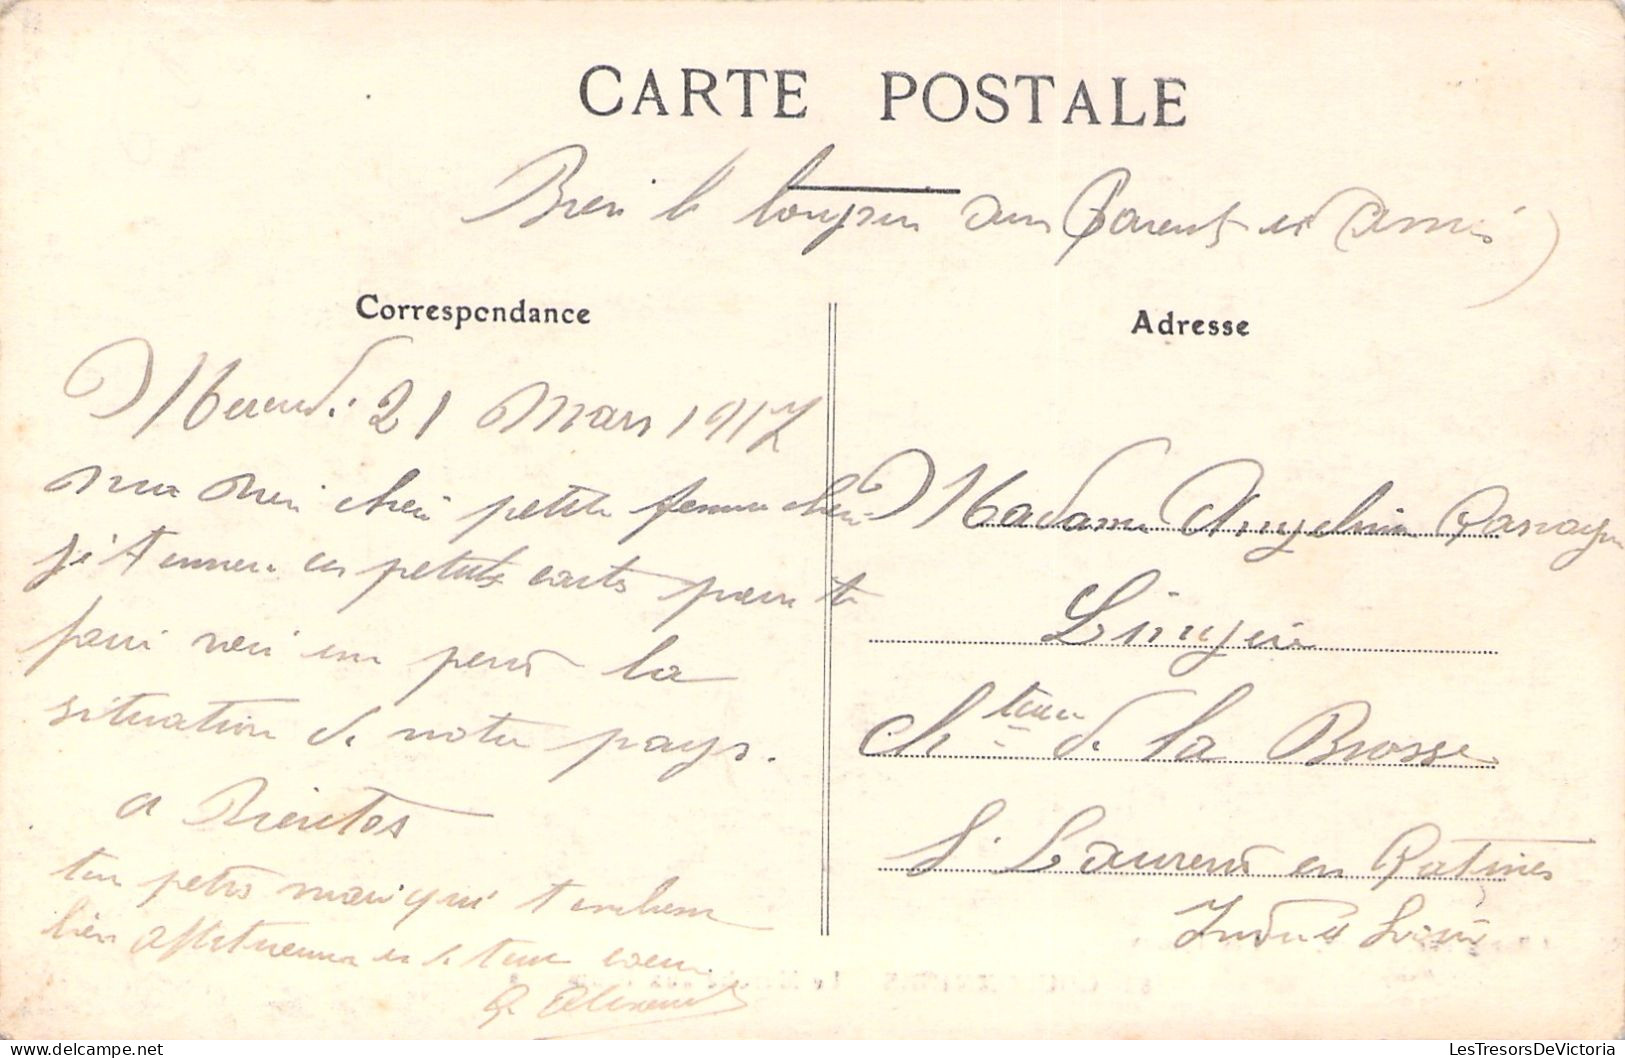 CARTE POSTALE
Bien le bonjour aux Parents et amis
Correspondance
Adresse
Mercredi 21 Mars 1917
ma chei petite femme
je t envoi ces petits carts pour te
fair voir un peut la
situation de notre pays.
a Bientos
ton petit mari qui t embrasse
bien affectueusement et de tout coeur
Madame Angelina
Lingère
Chteau de la Brosse
St Laurent en Gatines
Indre et Loire
LesTresorsDeVictoria